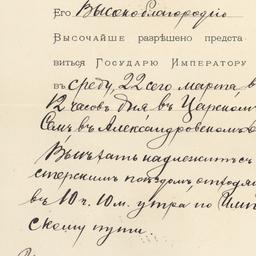 Его Высокоблагородію
Высочайше разрѣшено предста
виться Государю Императору
въ среду, 22 сего марта в
12 часовъ дня въ Царскомъ
Селѣ въ Александровскомъ
Выѣхать надлежитъ съ
стерскимъ поѣздомъ, отходя
въ 10 ч. 10 м. утра по Импе
скому пути.